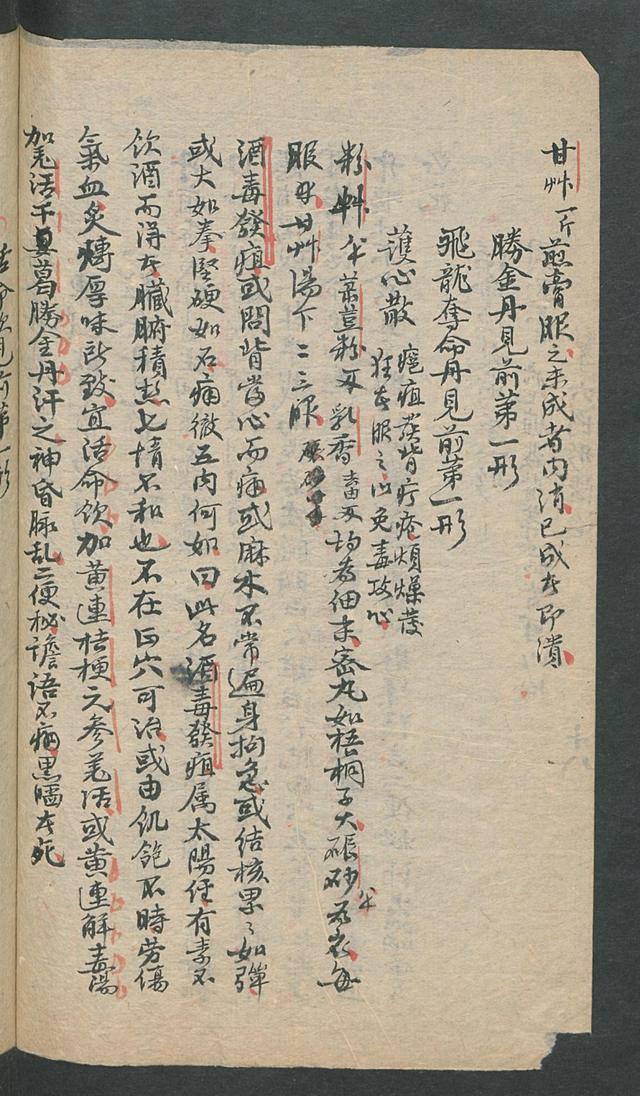 甘艸一斤煎膏眼之未成者內消已成者即潰
勝金丹見前第一形
飛龍奪命丹見前第一形
護心散 瘡疽發背疔瘡煩燥發
狂者眼之以免毒攻心
粉艸 菉荳粉 乳香 均為細末密丸如梧桐子大硃砂為衣每
服 甘艸湯下二三眼
酒毒發疽或問背當心而痛或麻木不常遍身拘急或結核累々如彈
或大如拳堅硬如石痛徹五內何如曰此名酒毒發疽属太陽任有素不
飲酒而得者臟腑積熱七情不和也不在正穴可治或由飢飽不時劳傷
氣血炙煿厚味所致宜活命飲加黃連桔梗元參羌活或黃連解毒湯
加羌活干葛勝金丹汗之神昏脉乱二便秘譫語不痛黑陷者死